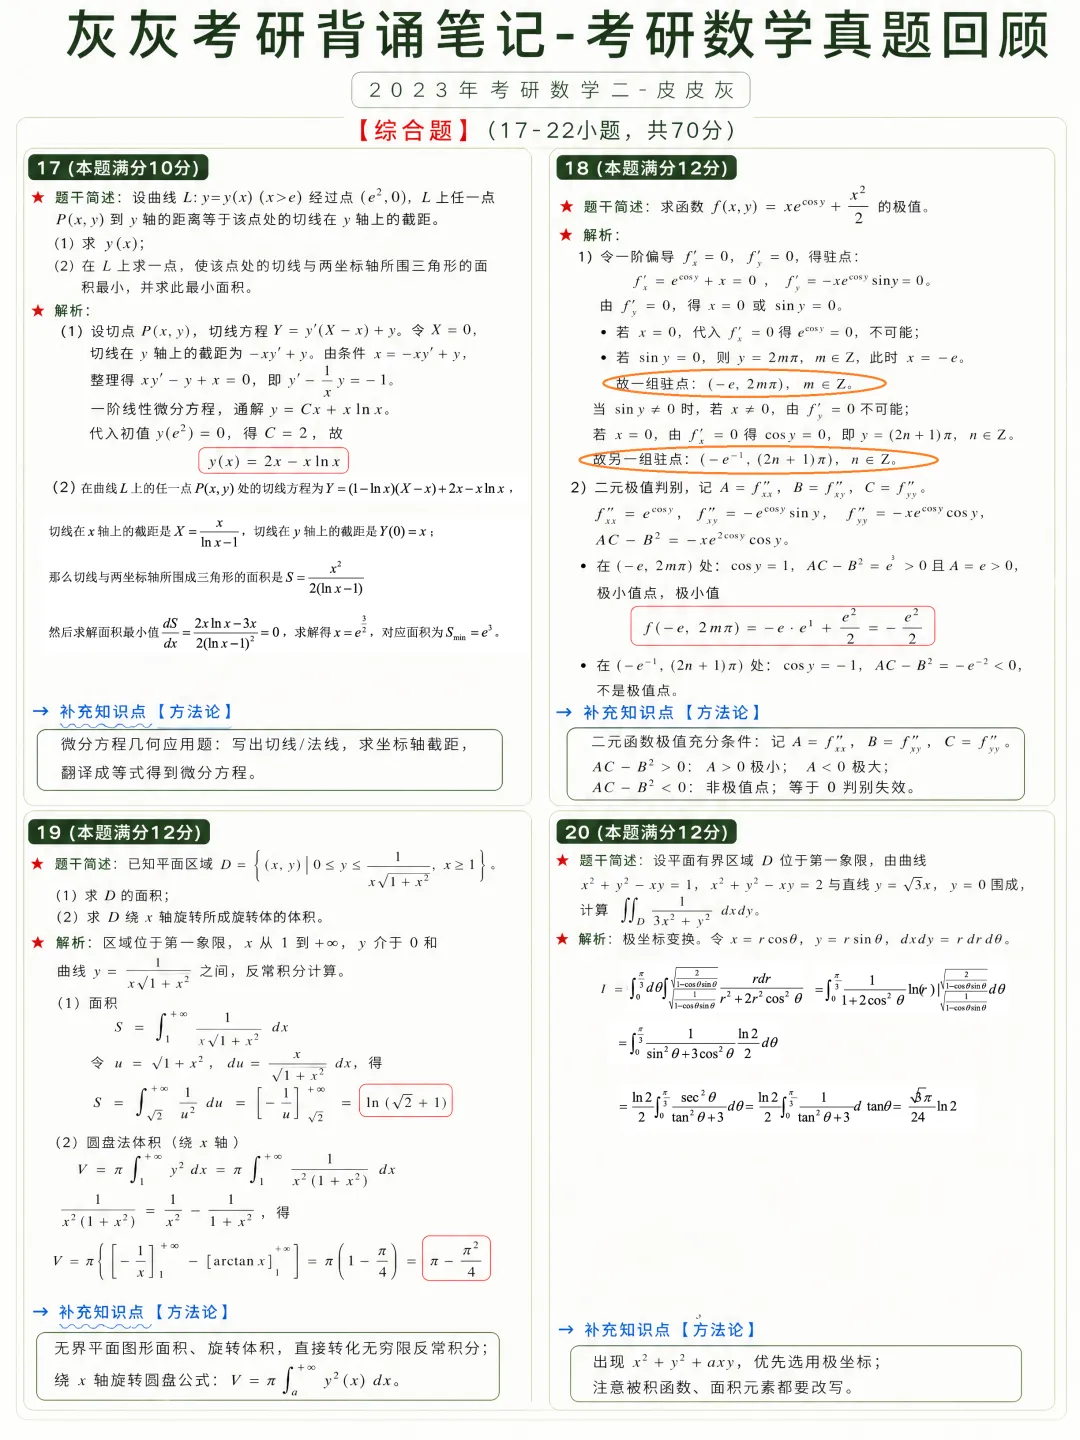 灰灰考研背诵笔记-考研数学真题回顾
2023年考研数学二-皮皮灰
【综合题】(17-22小题，共70分)
17 (本题满分10分)
★ 题干简述：设曲线 L: y=y(x) (x>e) 经过点 (e²,0)，L 上任一点
P(x, y) 到 y 轴的距离等于该点处的切线在 y 轴上的截距。
(1) 求 y(x)；
(2) 在 L 上求一点，使该点处的切线与两坐标轴所围三角形的面
积最小，并求此最小面积。
★ 解析：
(1) 设切点 P(x, y)，切线方程 Y = y′(X − x) + y。令 X = 0，
切线在 y 轴上的截距为 −xy′ + y。由条件 x = −xy′ + y，
整理得 xy′ − y + x = 0，即 y′ − 1/x y = −1。
一阶线性微分方程，通解 y = Cx + x ln x。
代入初值 y(e²) = 0，得 C = 2，故
y(x) = 2x − x ln x
(2) 在曲线 L 上的任一点 P(x, y) 处的切线方程为 Y = (1−ln x)(X−x)+2x−x ln x，
切线在 x 轴上的截距是 X = x/(ln x−1)，切线在 y 轴上的截距是 Y(0) = x；
那么切线与两坐标轴所围成三角形的面积是 S = x²/(2(ln x−1))
然后求解面积最小值 dS/dx = (2x ln x−3x)/(2(ln x−1)²) = 0，求解得 x = e^(3/2)，对应面积为 S_min = e³。
→ 补充知识点【方法论】
微分方程几何应用题：写出切线/法线，求坐标轴截距，
翻译成等式得到微分方程。
18 (本题满分12分)
★ 题干简述：求函数 f(x, y) = xe^(cos y) + x²/2 的极值。
★ 解析：
1) 令一阶偏导 f′_x = 0，f′_y = 0，得驻点：
f′_x = e^(cos y) + x = 0，f′_y = −xe^(cos y) sin y = 0。
由 f′_y = 0，得 x = 0 或 sin y = 0。
• 若 x = 0，代入 f′_x = 0 得 e^(cos y) = 0，不可能；
• 若 sin y = 0，则 y = 2mπ，m ∈ Z，此时 x = −e。
故一组驻点：(−e, 2mπ)，m ∈ Z。
当 sin y ≠ 0 时，若 x ≠ 0，由 f′_y = 0 不可能；
若 x = 0，由 f′_x = 0 得 cos y = 0，即 y = (2n + 1)π，n ∈ Z。
故另一组驻点：(−e⁻¹, (2n + 1)π)，n ∈ Z。
2) 二元极值判别，记 A = f″_xx，B = f″_xy，C = f″_yy。
f″_xx = e^(cos y)，f″_xy = −e^(cos y) sin y，f″_yy = −xe^(cos y) cos y，
AC − B² = −xe^(2cos y) cos y。
• 在 (−e, 2mπ) 处：cos y = 1，AC − B² = e³ > 0 且 A = e > 0，
极小值点，极小值
f(−e, 2mπ) = −e · e¹ + e²/2 = −e²/2
• 在 (−e⁻¹, (2n + 1)π) 处：cos y = −1，AC − B² = −e⁻² < 0，
不是极值点。
→ 补充知识点【方法论】
二元函数极值充分条件：记 A = f″_xx，B = f″_xy，C = f″_yy。
AC − B² > 0：A > 0 极小；A < 0 极大；
AC − B² < 0：非极值点；等于 0 判别失效。
19 (本题满分12分)
★ 题干简述：已知平面区域 D = {(x, y) | 0 ≤ y ≤ 1/(x√(1 + x²)), x ≥ 1}。
(1) 求 D 的面积；
(2) 求 D 绕 x 轴旋转所成旋转体的体积。
★ 解析：区域位于第一象限，x 从 1 到 +∞，y 介于 0 和
曲线 y = 1/(x√(1 + x²)) 之间，反常积分计算。
(1) 面积
S = ∫₁^(+∞) 1/(x√(1 + x²)) dx
令 u = √(1 + x²)，du = x/√(1 + x²) dx，得
S = ∫_√2^(+∞) 1/u² du = [−1/u]_√2^(+∞) = ln (√2 + 1)
(2) 圆盘法体积（绕 x 轴）
V = π ∫₁^(+∞) y² dx = π ∫₁^(+∞) 1/(x²(1 + x²)) dx
1/(x²(1 + x²)) = 1/x² − 1/(1 + x²)，得
V = π{[−1/x]₁^(+∞) − [arctan x]₁^(+∞)] = π(1 − π/4) = π − π²/4
→ 补充知识点【方法论】
无界平面图形面积、旋转体积，直接转化无穷限反常积分；
绕 x 轴旋转圆盘公式：V = π ∫_a^(+∞) y²(x) dx。
20 (本题满分12分)
★ 题干简述：设平面有界区域 D 位于第一象限，由曲线
x² + y² − xy = 1，x² + y² − xy = 2 与直线 y = √3x，y = 0 围成，
计算 ∬_D 1/(3x² + y²) dxdy。
★ 解析：极坐标变换。令 x = r cosθ，y = r sinθ，dxdy = r dr dθ。
I = ∫₀^(π/3) dθ ∫_√(1/(1−cosθ sinθ))^√(2/(1−cosθ sinθ)) rdr/(r² + 2r² cos² θ) = ∫₀^(π/3) 1/(1+2cos² θ) ln(r)|_√(1/(1−cosθ sinθ))^√(2/(1−cosθ sinθ)) dθ
= ∫₀^(π/3) 1/(sin² θ+3cos² θ) ln2/2 dθ
= ln2/2 ∫₀^(π/3) sec² θ/(tan² θ+3) dθ = ln2/2 ∫₀^(π/3) 1/(tan² θ+3) d tanθ = √3π/24 ln2
→ 补充知识点【方法论】
出现 x² + y² + axy，优先选用极坐标；
注意被积函数、面积元素都要改写。